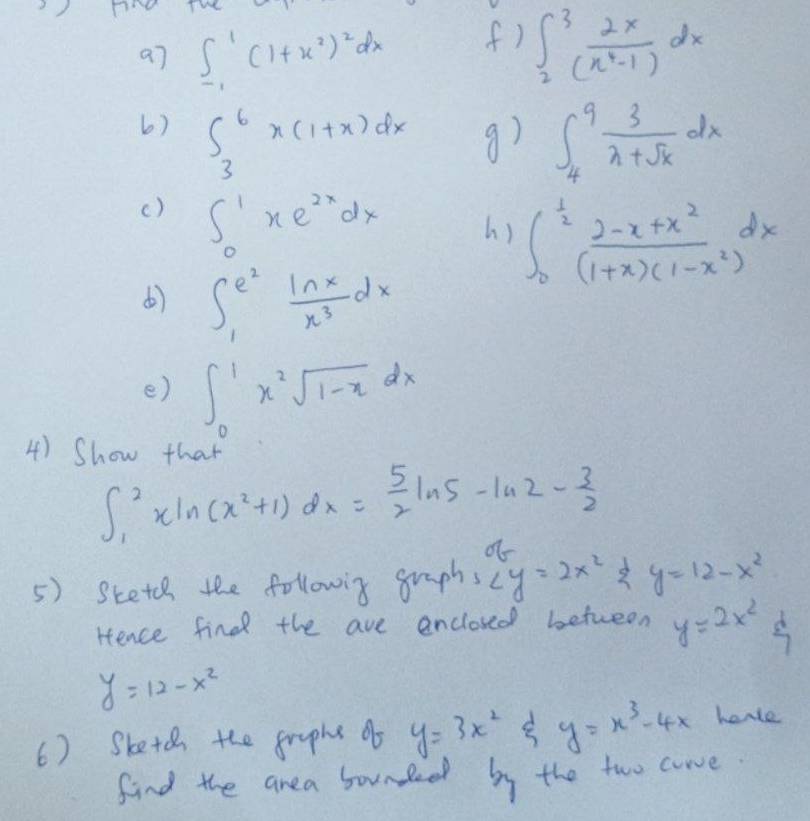 3) Find the
a) ∫₋₁¹ (1+x²)² dx
b) ∫₃⁶ x(1+x) dx
c) ∫₀¹ x e²ˣ dx
d) ∫₁^(e²) ln x / x³ dx
e) ∫₀¹ x² √(1-x) dx
f) ∫₂³ 2x / (x⁴-1) dx
g) ∫₄⁹ 3 / (x+√x) dx
h) ∫₀^(1/2) (2-x+x²) / ((1+x)(1-x²)) dx
4) Show that
∫₁² x ln(x²+1) dx = 5/2 ln5 - ln2 - 3/2
5) Sketch the following graphs of y = 2x² & y = 12-x²
Hence find the are enclosed between y = 2x² &
y = 12-x²
6) Sketch the graphs of y = 3x² & y = x³-4x hence
find the area bounded by the two curve.